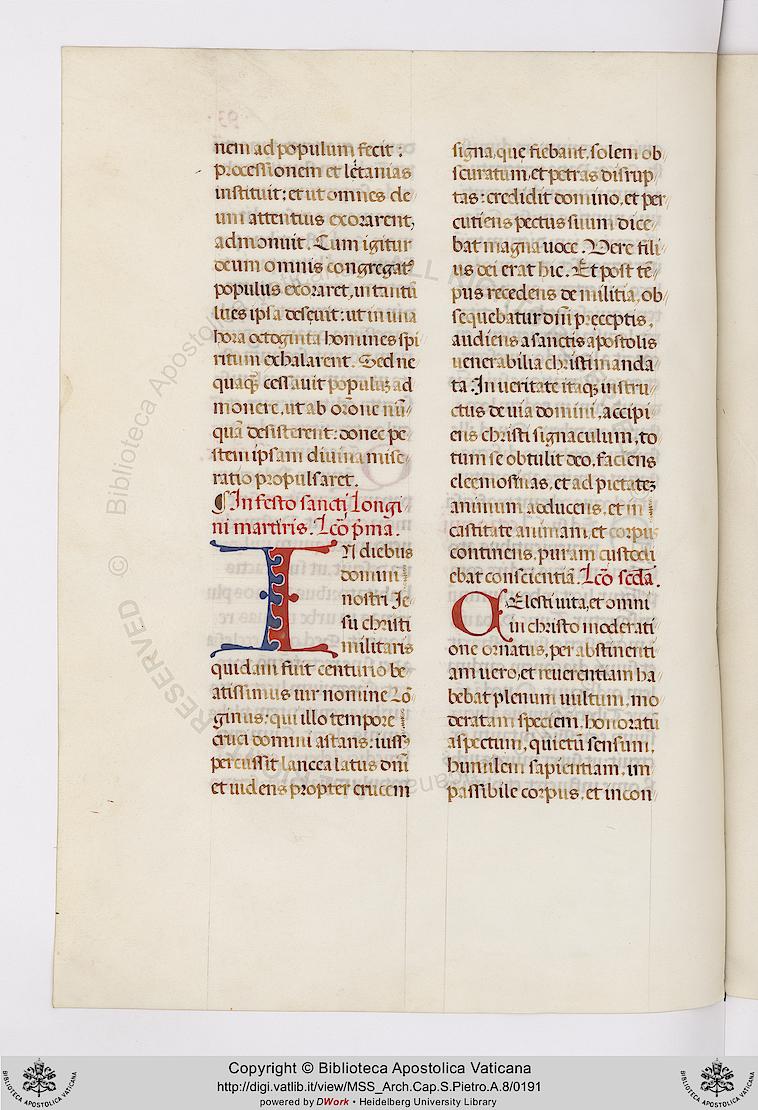 nem ad populum fecit:
processionem et letanias
instituit: et ut omnes de
um attentius exorarent,
admonuit. Cum igitur
deum omnis congregatꝰ
populus exoraret, in tantū
lues ipsa deseuit: ut in una
hora octoginta homines spi
ritum exhalarent. Sed ne
quaqꝫ cessauit populꝰ ad
monere, ut ab orōne nū
quā desisterent: donec pe
stem ipsam diuina mise
ratio propulsaret.
¶ In festo sancti Longi
ni martiris. Lcō pͥma.
IN diebus
domini
nostri Ie
su christi
militaris
quidam fuit centurio be
atissimus uir nomine Lō
ginus: qui illo tempore
cruci domini astans: iussꝰ
percussit lancea latus dnī
et uidens propter crucem
signa, que fiebant, solem ob
scuratum, et petras disrup
tas: credidit domino, et per
cutiens pectus suum dice
bat magna uoce. Vere fili
us dei erat hic. Et post tē
pus recedens de militia, ob
sequebatur dnī preceptis,
audiens a sanctis apostolis
uenerabilia christi manda
ta. In ueritate itaqꝫ instru
ctus de uia domini, accipi
ens christi signaculum, to
tum se obtulit deo, faciens
eleemosinas, et ad pietateꝫ
animum adducens, et in
castitate animam et corpus
continens, puram custodi
ebat conscientiā. Lcō scdā.
CElesti uita, et omni
in christo moderati
one ornatus, per abstinenti
am uero, et reuerentiam ha
bebat plenum uultum, mo
deratam speciem, honoratū
aspectum, quietū sensum,
humilem sapientiam, im
passibile corpus, et incon
Copyright © Biblioteca Apostolica Vaticana
http://digi.vatlib.it/view/MSS_Arch.Cap.S.Pietro.A.8/0191
powered by DWork • Heidelberg University Library